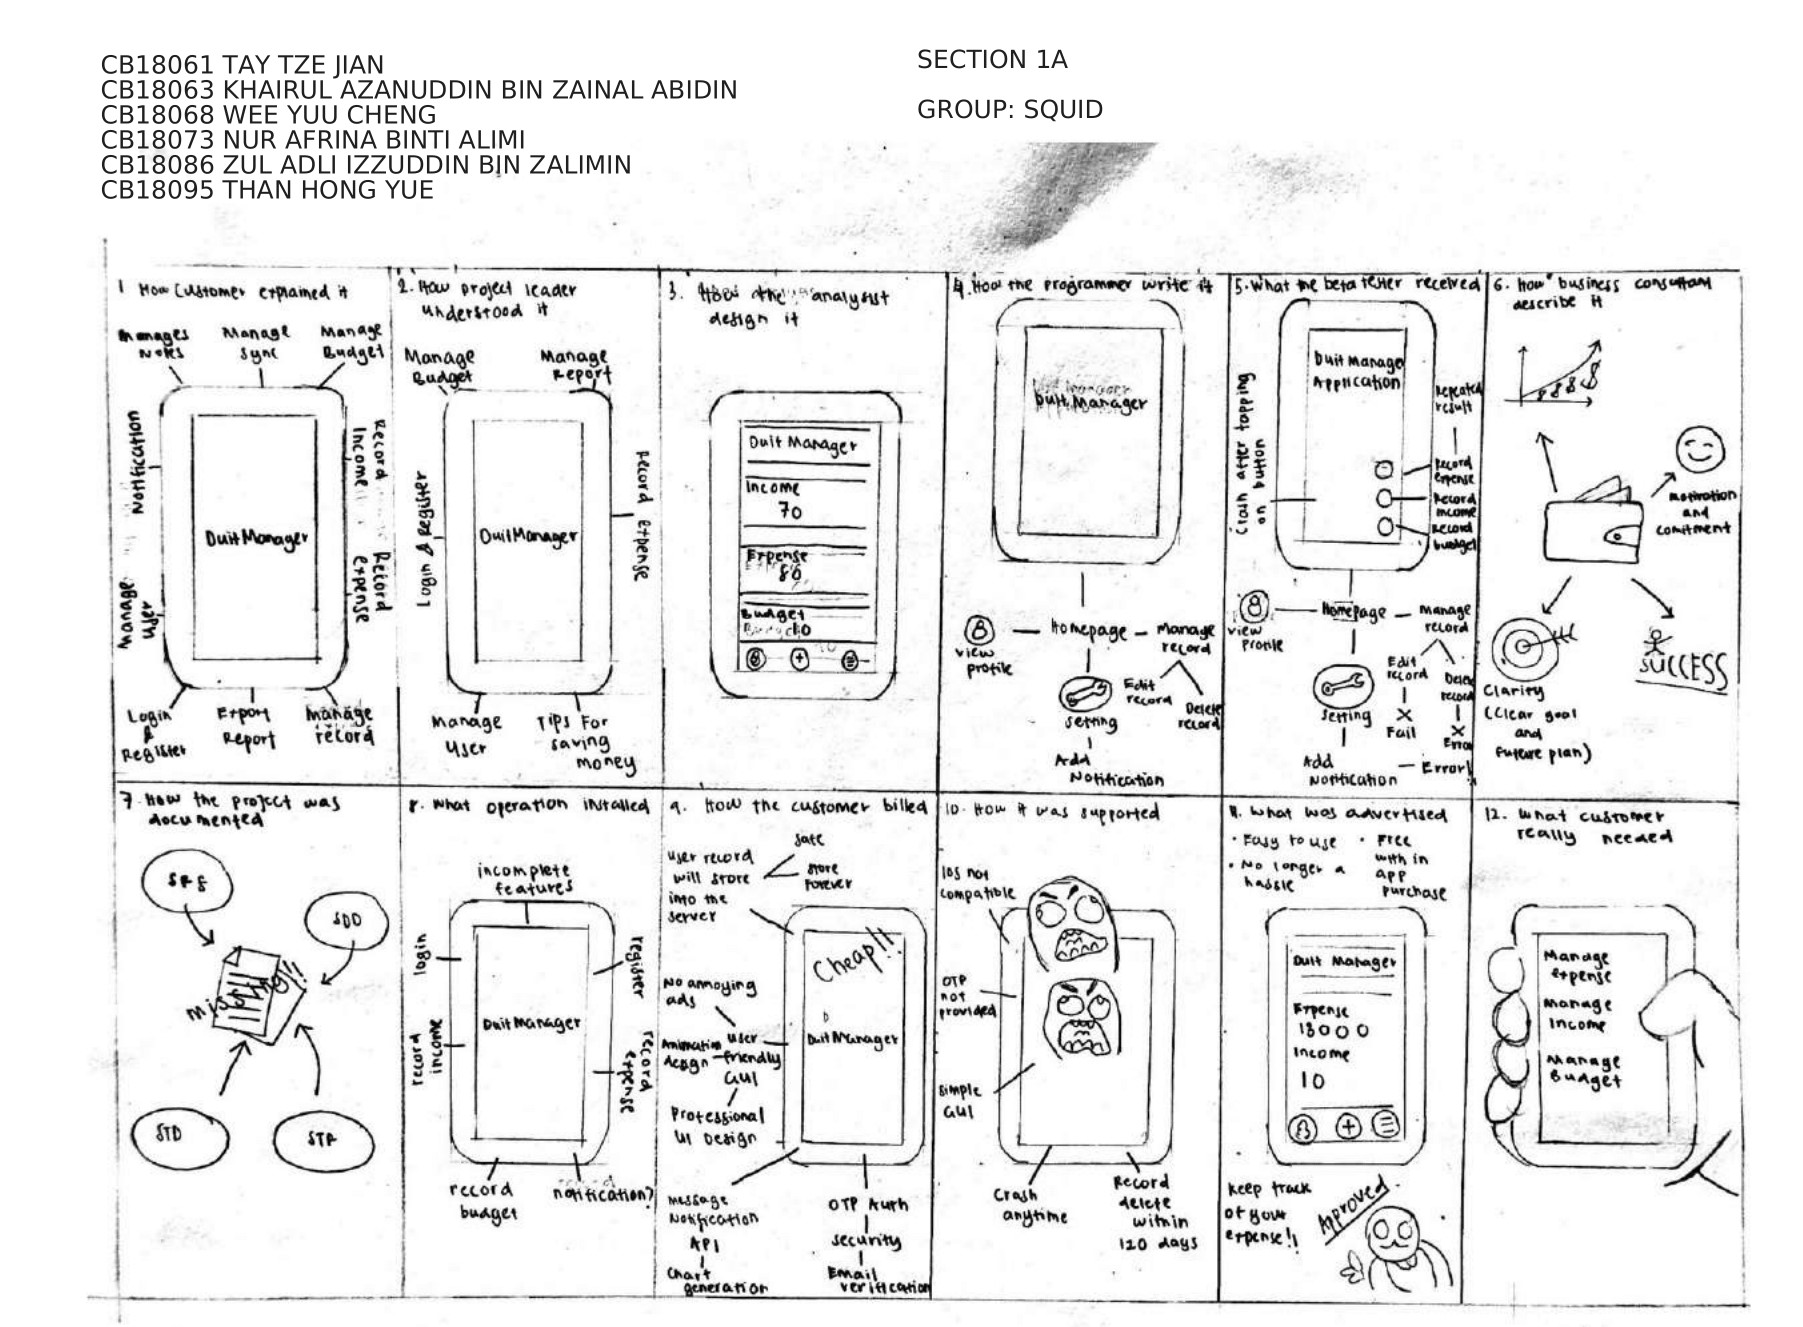 CB18061 TAY TZE JIAN
CB18063 KHAIRUL AZANUDDIN BIN ZAINAL ABIDIN
CB18068 WEE YUU CHENG
CB18073 NUR AFRINA BINTI ALIMI
CB18086 ZUL ADLI IZZUDDIN BIN ZALIMIN
CB18095 THAN HONG YUE
SECTION 1A
GROUP: SQUID
1 How Customer explained it
Manages
Notes
Manage
Sync
Manage
Budget
Notification
Record
Income
DuitManager
Record
Expense
Manage
User
Login
&
Register
Export
Report
manage
record
2. How project leader
understood it
Manage
Budget
Manage
Report
Login & Register
DuitManager
Record Expense
Manage
User
Tips For
saving
money
3. How the analysist
design it
Duit Manager
Income
70
Expense
80
Budget
10
4. How the programmer write it
Duit Manager
view
profile
Homepage
Manage
record
Edit
record
Delete
record
setting
Add
Notification
5. What the beta tester received
Duit Manager
Application
Crash after tapping
on button
Repeated
result
Record
expense
Record
income
Record
budget
view
profile
Homepage
manage
record
Edit
record
Delete
record
setting
X
Fail
X
Error
Add
Notification
Error!
6. How business consultant
describe it
$
Motivation
and
comitment
Clarity
(Clear goal
and
future plan)
SUCCESS
7. How the project was
documented
SRS
SDD
missing!!
STD
STR
8. What operation installed
incomplete
features
login
register
DuitManager
record
income
record
expense
record
budget
notification?
9. How the customer billed
user record
will store
into the
server
safe
store
forever
Cheap!!
No annoying
ads
Animation
design
user
friendly
GUI
DuitManager
Professional
UI Design
Message
Notification
API
Chart
generation
OTP Auth
security
Email
verification
10. How it was supported
IOS not
compatible
OTP
not
provided
simple
GUI
Crash
anytime
Record
delete
within
120 days
11. What was advertised
• Easy to use
• No longer a
hassle
• Free
with in
app
purchase
Duit Manager
Expense
13000
Income
10
Keep track
of your
expense!!
Approved
12. What customer
really needed
Manage
Expense
Manage
Income
Manage
Budget